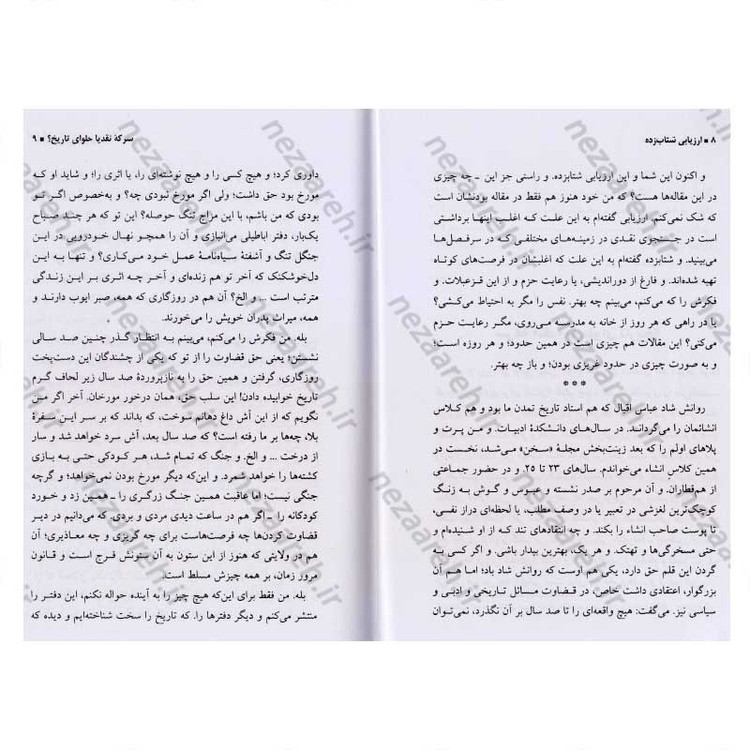 ۸ ■ ارزیابی شتاب‌زده
و اکنون این شما و این ارزیابی شتابزده. و راستی جز این ـ چه چیزی
در این مقاله‌ها هست؟ که من خود هنوز هم فقط در مقاله بودنشان است
که شک نمی‌کنم. ارزیابی گفته‌ام به این علت که اغلب اینها برداشتی
است در جستجوی نقدی در زمینه‌های مختلفی که در سرفصل‌ها
می‌بینید. و شتابزده گفته‌ام به این علت که اغلبشان در فرصت‌های کوتاه
تهیه شده‌اند. و فارغ از دوراندیشی، یا رعایت حزم و از این قزعبلات. و
فکرش را که می‌کنم، می‌بینم چه بهتر. نفس را مگر به احتیاط می‌کشی؟
یا در راهی که هر روز از خانه به مدرسه می‌روی، مگر رعایت حزم
می‌کنی؟ این مقالات هم چیزی است در همین حدود؛ و هر روزه است؛
و به صورت چیزی در حدود غریزی بودن؛ و باز چه بهتر.
* * *
روانش شاد عباس اقبال که هم استاد تاریخ تمدن ما بود و هم کلاس
انشائمان را می‌گرداند. در سال‌های دانشکدهٔ ادبیات. و من پرت و
پلاهای اولم را که بعد زینت‌بخش مجلهٔ «سخن» می‌شد، نخست در
همین کلاس انشاء می‌خواندم. سال‌های ۲۳ تا ۲۵ و در حضور جماعتی
از هم‌قطاران. و آن مرحوم بر صدر نشسته و عبوس و گوش به زنگ
کوچک‌ترین لغزشی در تعبیر یا در وصف مطلب، یا لحظه‌ای دراز نفسی،
تا پوست صاحب انشاء را بکند. و چه انتقادهای تند که از او شنیده‌ام و
حتی مسخرگی‌ها و تهتک. و هر یک، بهترین بیدار باشی. و اگر کسی به
گردن این قلم حق دارد، یکی هم اوست که روانش شاد باد؛ اما هم آن
بزرگوار، اعتقادی داشت خاص، در قضاوت مسائل تاریخی و ادبی و
سیاسی نیز. می‌گفت: هیچ واقعه‌ای را تا صد سال بر آن نگذرد، نمی‌توان
سرکهٔ نقد یا حلوای تاریخ؟ ■ ۹
داوری کرد؛ و هیچ کسی را و هیچ نوشته‌ای را، یا اثری را؛ و شاید او که
مورخ بود حق داشت؛ ولی اگر مورخ نبودی چه؟ و به‌خصوص اگر تو
بودی که من باشم، با این مزاج تنگ حوصله؟ این تو که هر چند صباح
یک‌بار، دفتر اباطیلی می‌انبازی و آن را همچو نهال خودرویی در این
جنگل تنگ و آشفتهٔ سیاه‌نامهٔ عمل خود می‌کاری؟ و تنها به این
دل‌خوشکنک که آخر تو هم زنده‌ای و آخر چه اثری بر این زندگی
مترتب است ... و الخ؟ آن هم در روزگاری که همه، صبر ایوب دارند و
همه، میراث پدران خویش را می‌خورند.
بله. من فکرش را می‌کنم، می‌بینم به انتظار گذر چنین صد سالی
نشستن؛ یعنی حق قضاوت را از تو که یکی از چشندگان این دست‌پخت
روزگاری، گرفتن و همین حق را به نازپروردهٔ صد سال زیر لحاف گرم
تاریخ خوابیده دادن! این سلب حق، همان درخور مورخان. آخر اگر من
نگویم که از این آش داغ دهانم سوخت، که بداند که بر سر این سفرهٔ
بلا، چه‌ها بر ما رفته است؟ که صد سال بعد، آش سرد خواهد شد و سار
از درخت ... و الخ. و جنگ که تمام شد، هر کودکی حتی به بازی
کشته‌ها را خواهد شمرد. و این‌که دیگر مورخ بودن نمی‌خواهد؛ و گرچه
جنگی نیست؛ اما عاقبت همین جنگ زرگری را ـ همین زد و خورد
کودکانه را ـ اگر هم در ساعت دیدی مردی و بردی. که می‌دانیم در دیر
قضاوت کردن‌ها چه فرصت‌هاست برای چه گریزی و چه معاذیری؛ آن
هم در ولایتی که هنوز از این ستون به آن ستونش فرج است و قانون
مرور زمان، بر همه چیزش مسلط است.
بله. من فقط برای این‌که هیچ چیز را به آینده حواله نکنم، این دفتر را
منتشر می‌کنم و دیگر دفترها را. که تاریخ را سخت شناخته‌ایم و دیده که
nezaareh.ir